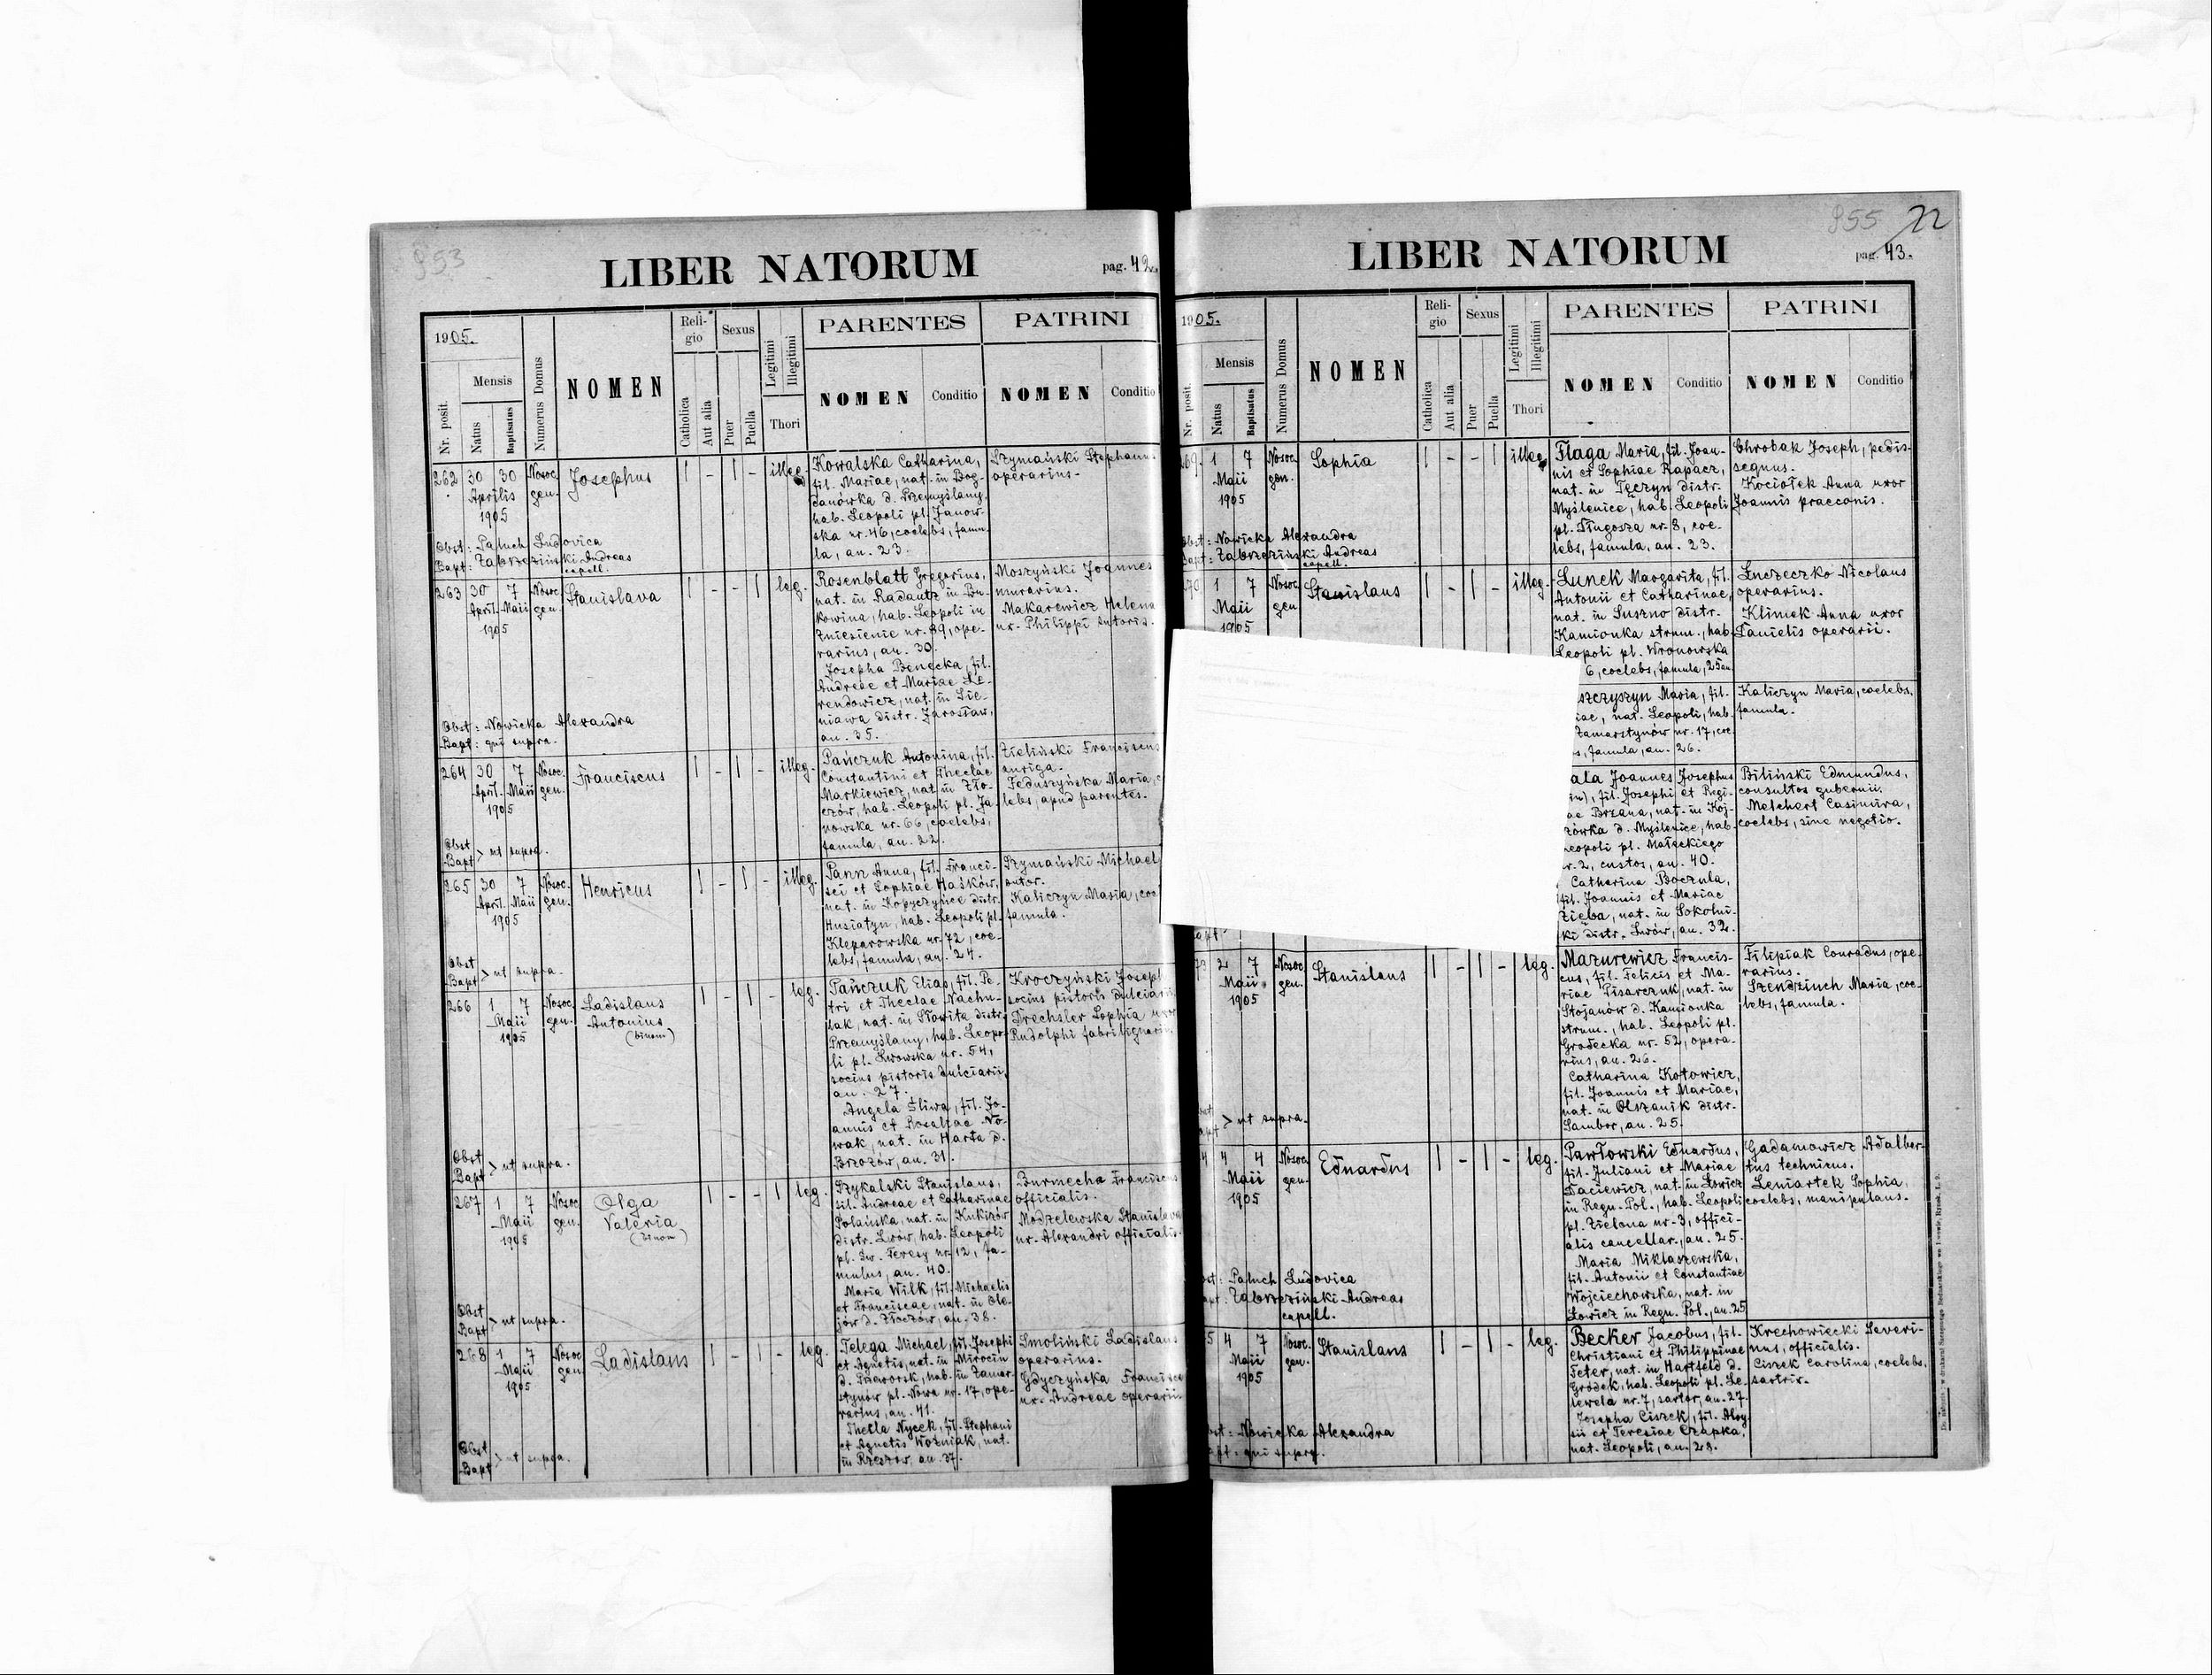 953
LIBER NATORUM
pag. 42.
1905.
Nr. posit.
Mensis
Natus
Baptisatus
Numerus Domus
NOMEN
Reli-
gio
Catholica
Aut alia
Sexus
Puer
Puella
Legitimi
Illegitimi
Thori
PARENTES
NOMEN
Conditio
PATRINI
NOMEN
Conditio
262 30 30 Nosoc. Josephus 1 - 1 - illeg.
Aprilis gen.
1905
Kowalska Catharina,
fil. Mariae, nat. in Bog-
danówka d. Przemyślany,
hab. Leopoli pl. Janow-
ska nr. 46, coelebs, famu-
la, an. 23.
Szymański Stephanus
operarius.
Obst: Paluch Ludovica
Bapt: Zabrzeziński Andreas
capell.
263 30 7 Nosoc. Stanislava 1 - - 1 leg.
April. Maii gen.
1905
Rosenblatt Gregorius,
nat. in Radautz in Bu-
kowina, hab. Leopoli in
Zniesienie nr. 89, ope-
rarius, an. 30.
Josepha Benecka, fil.
Andreae et Mariae Le-
rendowicz, nat. in Sie-
niawa distr. Jarosław,
an. 35.
Moszyński Joannes
murarius.
Makarewicz Helena
ux. Philippi sutoris.
Obst: Nowicka Alexandra
Bapt: qui supra.
264 30 7 Nosoc. Franciscus 1 - 1 - illeg.
April. Maii gen.
1905
Pańczuk Antonina, fil.
Constantini et Theclae
Markiewicz, nat. in Zło-
czów, hab. Leopoli pl. Ja-
nowska nr. 66, coelebs,
famula, an. 22.
Zieliński Franciscus
auriga.
Feduszyńska Maria, c
lebs, apud parentes.
Obst
Bapt > ut supra.
265 30 7 Nosoc. Henricus 1 - 1 - illeg.
April. Maii gen.
1905
Pann Anna, fil. Franci-
sci et Sophiae Haśków,
nat. in Kopyczyńce distr.
Husiatyn, hab. Leopoli pl.
Kleparowska nr. 72, coe-
lebs, famula, an. 24.
Szymański Michael
sutor.
Kaliczyn Maria, coe
famula.
Obst
Bapt > ut supra.
266 1 7 Nosoc. Ladislaus 1 - 1 - leg.
Maii gen. Antonius
1905 (binom)
Pańczuk Elias, fil. Pe-
tri et Theclae Nachu-
lak, nat. in Słowita distr.
Przemyślany, hab. Leopo-
li pl. Lwowska nr. 54,
socius pistoris dulciarii,
an. 27.
Angela Śliwa, fil. Jo-
annis et Rosaliae No-
wak, nat. in Harta d.
Brzozów, an. 31.
Kroczyński Joseph
socius pistoris dulciarii
Drechsler Sophia uxor
Rudolphi fabri lignarii
Obst
Bapt > ut supra.
267 1 7 Nosoc. Olga 1 - - 1 leg.
Maii gen. Valeria
1905 (binom)
Szykalski Stanislaus,
fil. Andreae et Catharinae
Polańska, nat. in Kukizów
distr. Lwów, hab. Leopoli
pl. Św. Teresy nr. 12, fa-
mulus, an. 40.
Maria Wilk, fil. Michaelis
et Franciscae, nat. in Ole-
jów d. Złoczów, an. 38.
Burmecha Franciscus
officialis.
Modzelewska Stanislava
ux. Alexandri officialis.
Obst
Bapt > ut supra.
268 1 7 Nosoc. Ladislaus 1 - 1 - leg.
Maii gen.
1905
Telega Michael, fil. Josephi
et Agnetis, nat. in Mirocin
d. Przeworsk, hab. in Zamar-
stynów pl. Nowa nr. 17, ope-
rarius, an. 41.
Thecla Nycek, fil. Stephani
et Agnetis Woźniak, nat.
in Rzeszów, an. 37.
Smoliński Ladislaus
operarius.
Gdyczyńska Francisca
ux. Andreae operarii
Obst
Bapt > ut supra.
955 22
LIBER NATORUM
pag. 43.
1905.
Nr. posit.
Mensis
Natus
Baptisatus
Numerus Domus
NOMEN
Reli-
gio
Catholica
Aut alia
Sexus
Puer
Puella
Legitimi
Illegitimi
Thori
PARENTES
NOMEN
Conditio
PATRINI
NOMEN
Conditio
269 1 7 Nosoc. Sophia 1 - - 1 illeg.
Maii gen.
1905
Flaga Maria, fil. Joan-
nis et Sophiae Rapacz,
nat. in Tęczyn distr.
Myślenice, hab. Leopoli
pl. Długosza nr. 8, coe-
lebs, famula, an. 23.
Chrobak Joseph, pedis-
sequus.
Kociołek Anna uxor
Joannis praeconis.
Obst: Nowicka Alexandra
Bapt: Zabrzeziński Andreas
capell.
270 1 7 Nosoc. Stanislaus 1 - 1 - illeg.
Maii gen
1905
Lunek Margarita, fil.
Antonii et Catharinae,
nat. in Suszno distr.
Kamionka strum., hab.
Leopoli pl. Wronowska
6, coelebs, famula, 25 an.
Łuczeczko Nicolaus
operarius.
Klimek Anna uxor
Danielis operarii.
szczyszyn Maria, fil.
iae, nat. Leopoli, hab.
Zamarstynów nr. 17, coe-
s, famula, an. 26.
Kaliczyn Maria, coelebs,
famula.
ala Joannes Josephus
in), fil. Josephi et Regi-
ae Brzana, nat. in Koj-
zówka d. Myślenice, hab.
Leopoli pl. Małeckiego
nr. 2, custos, an. 40.
Catharina Boczula,
fil. Joannis et Mariae
Zięba, nat. in Sokolni-
ki distr. Lwów, an. 32.
Biliński Edmundus,
consultos gubernii.
Melchert Casimira,
coelebs, sine negotio.
apt
73 2 7 Nosoc. Stanislaus 1 - 1 - leg.
Maii gen.
1905
Mazurewicz Francis-
cus, fil. Felicis et Ma-
riae Pisarczuk, nat. in
Stojanów d. Kamionka
strum., hab. Leopoli pl.
Grodecka nr. 52, opera-
rius, an. 26.
Catharina Kotowicz,
fil. Joannis et Mariae,
nat. in Olszanik distr.
Sambor, an. 25.
Filipiak Conradus, ope-
rarius.
Szendziuch Maria, coe-
lebs, famula.
> ut supra.
4 4 4 Nosoc. Eduardus 1 - 1 - leg.
Maii gen.
1905
Pawłowski Eduardus,
fil. Juliani et Mariae
Daciewicz, nat. in Łowicz
in Regn. Pol., hab. Leopoli
pl. Zielona nr. 3, offici-
alis cancellar., an. 25.
Maria Miklaszewska,
fil. Antonii et Constantiae
Wojciechowska, nat. in
Łowicz in Regn. Pol., an. 25
Gadamowicz Adalber-
tus technicus.
Leniartek Sophia,
coelebs, manipulans.
Obst: Paluch Ludovica
Bapt: Zabrzeziński Andreas
capell.
5 4 7 Nosoc. Stanislaus 1 - 1 - leg.
Maii gen.
1905
Becker Jacobus, fil.
Christiani et Philippinae
Feter, nat. in Hartfeld d.
Gródek, hab. Leopoli pl. Le-
lewela nr. 7, sartor, an. 27.
Josepha Ciszek, fil. Aloy-
sii et Teresiae Czapka,
nat. Leopoli, an. 28.
Krechowiecki Severi-
nus, officialis.
Ciszek Carolina, coelebs,
sartrix.
Obst: Nowicka Alexandra
Bapt: qui supra.